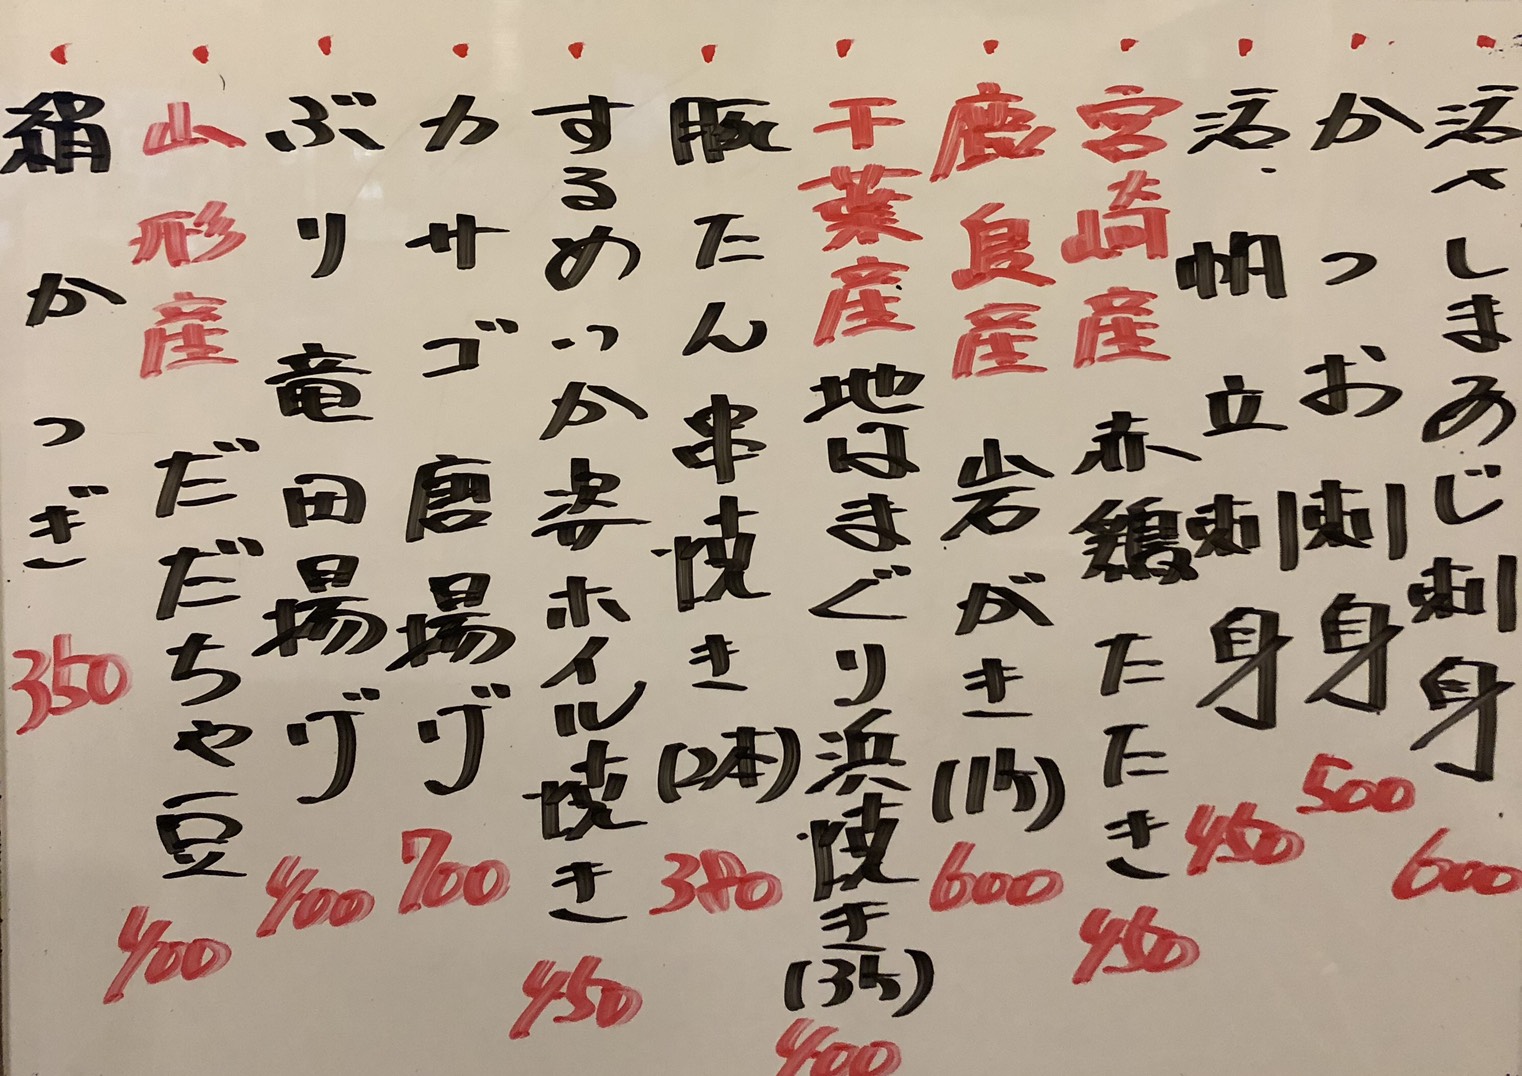 活〆しまあじ刺身 600
かつお刺身 500
活帆立刺身 450
宮崎産赤鶏たたき 450
鹿島産岩がき(1ケ) 600
千葉産地はまぐり浜焼き(3ケ) 400
豚たん串焼き(2本) 380
するめいか姿ホイル焼き 450
カサゴ唐揚げ 700
ぶり竜田揚げ 400
山形産だだちゃ豆 400
絹かつぎ 350